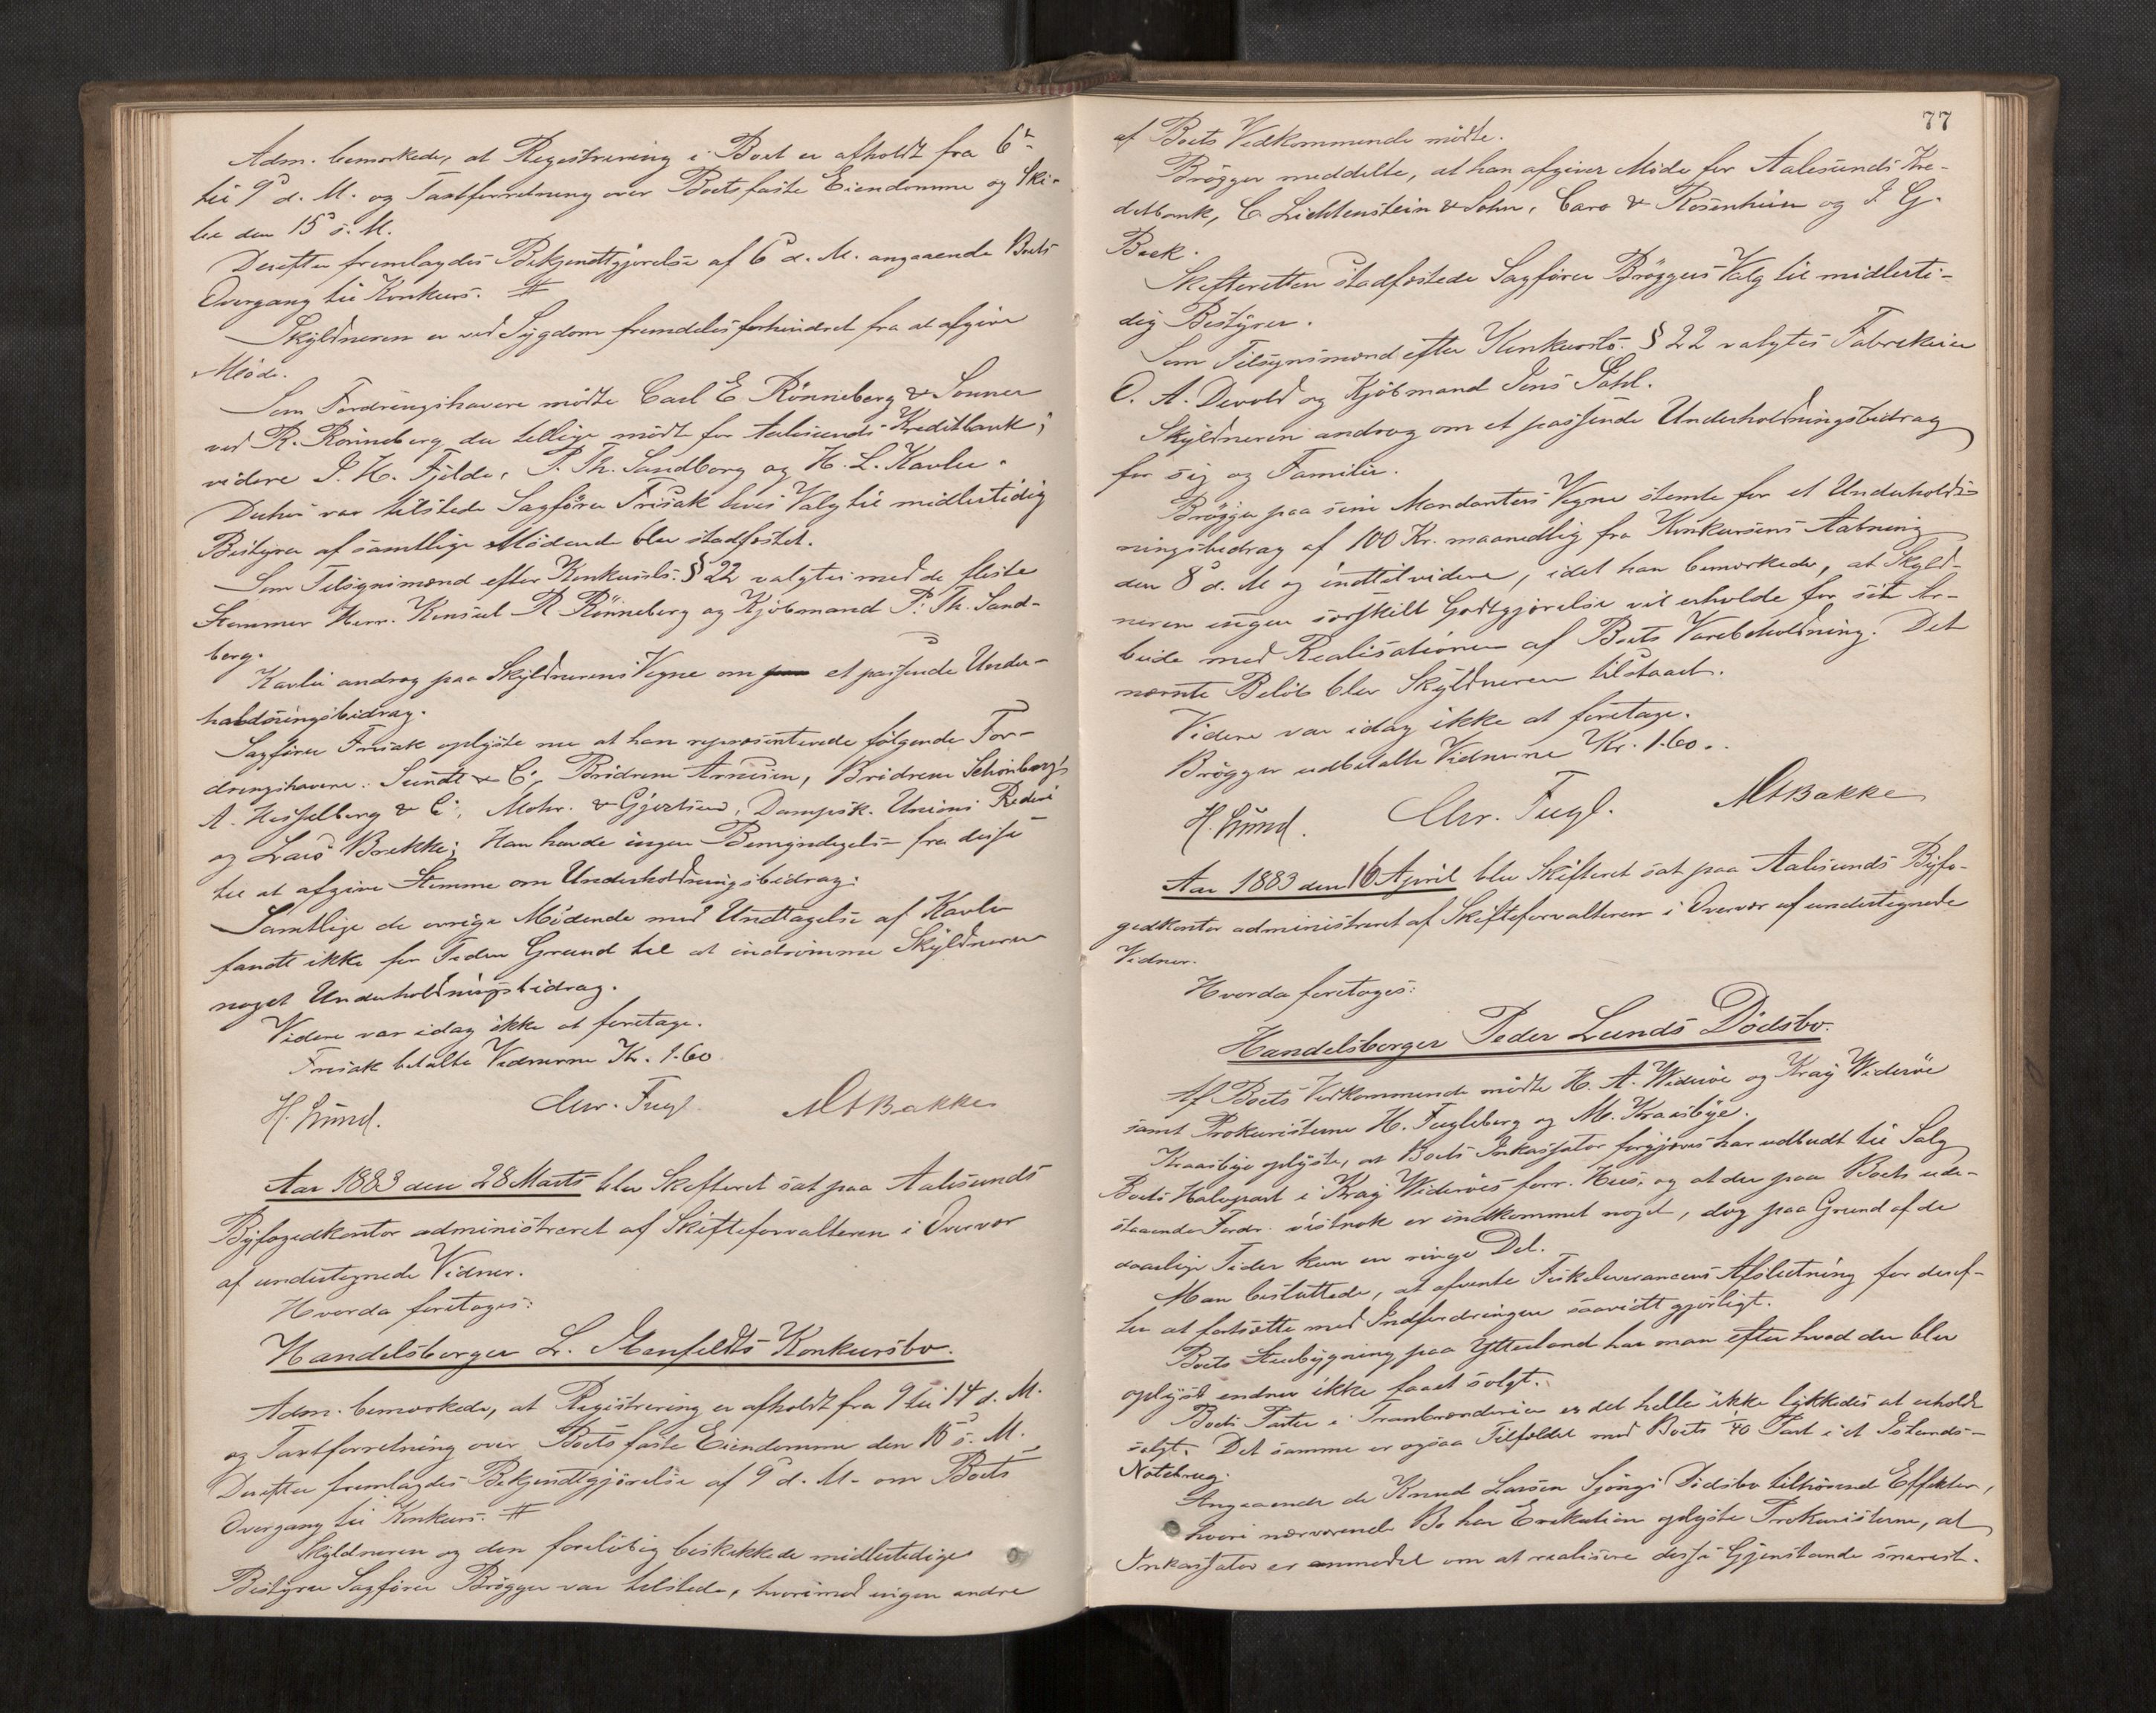 Adm. bemærkede, at Registrering i Boet er afholdt fra 6te
til 9d d. M. og Taxtforretning over Boets faste Eiendomme og Ski-
be den 15d s. M.
Derefter fremlagdes Bekjendtgjørelse af 6d d. M. angaaende Boets
Overgang til Konkurs. #
Skyldneren er ved Sygdom fremdeles forhindret fra at afgive
Møde.
Som Fordringshavere mødte Carl E. Rönneberg & Sönner
ved R. Rönneberg, der tillige mødte for Aalesunds Kreditbank;
videre P. H. Fjelde, P. Th. Sandborg og H. L. Kavlie.
Derhos var tilstede Sagfører Frisak hvis Valg til midlertidig
Bestyrer af samtlige Mødende blev stadfæstet.
Som Tilsynsmænd efter Konkursls. § 22 valgtes med de fleste
Stemmer Herr. Konsul R Rönneberg og Kjøbmand P. Th. Sand-
berg.
Kavlie androg paa Skyldnerens Vegne om et passende Under-
holdningsbidrag.
Sagfører Frisak oplyste nu at han repræsenterede følgende For-
dringshavere: Sundt & Co, Brödrene Arnesen, Brödrene Schönberg,
A. Hesselberg & Co, Mohr & Gjertsen, Dampsk. Unions Rederi
og Lars Brekke; Han havde ingen Bemyndigelse fra disse
til at afgive Stemme om Underholdningsbidrag.
Samtlige de øvrige Mødende med Undtagelse af Kavlie
fandt ikke for Tiden Grund til at indrømme Skyldneren
noget Underholdningsbidrag.
Videre var idag ikke at foretage.
Frisak betalte Vidnerne Kr. 1.60
H. Lund. Chr. Fugl. M A Bakke
Aar 1883 den 28 Marts blev Skifteret sat paa Aalesunds
Byfogedkontor administreret af Skifteforvalteren i Overvær
af undertegnede Vidner.
Hvorda foretoges:
Handelsborger L. Konkursbo.
Adm. bemærkede, at Registrering er afholdt fra 9 til 14 d. M.
og Taxtforretning over Boets faste Eiendomme den 15d s. M.
Derefter fremlagdes Bekjendtgjørelse af 9d d. M. om Boets
Overgang til Konkurs. #
Skyldneren og den foreløbig beskikkede midlertidige
Bestyrer Sagfører Brögger var tilstede, hvorimod ingen andre
77
af Boets Vedkommende mødte.
Brögger meddelte, at han afgiver Møde for Aalesunds Kre-
ditbank, C. Lichtenstein & Sohn, Caro & Rosenheim og I G.
Beck.
Skifteretten stadfæstede Sagfører Brøggers Valg til midlerti-
dig Bestyrer.
Som Tilsynsmænd efter Konkursls. § 22 valgtes Fabrikeier
O. A. Devold og Kjøbmand Jens Dahl.
Skyldneren androg om et passende Underholdningsbidrag
for sig og Familie.
Brögger paa sine Mandanters Vegne stemte for et Underhold-
ningsbidrag af 100 Kr. maanedlig fra Konkursens Aabning
den 8d d. M og indtil videre, idet han bemærkede, at Skyld-
neren ingen særskilt Godtgjørelse vil erholde for sit Ar-
beide med Realisationen af Boets Varebeholdning. Det
nævnte Beløb blev Skyldneren tilstaaet.
Videre var idag ikke at foretage.
Brögger udbetalte Vidnerne Kr. 1.60.
H. Lund. Chr. Fugl. M A Bakke
Aar 1883 den 16 April blev Skifteret sat paa Aalesunds Byfo-
gedkontor administreret af Skifteforvalteren i Overvær af undertegnede
Vidner.
Hvorda foretoges:
Handelsborger Peder Lunds Dødsbo.
Af Boets Vedkommende mødte H. A. Widerøe og Krag Widerøe
samt Prokuristerne H. Fugleberg og M. Kraasbye.
Kraasbye oplyste, at Boets Inkassator forgjæves har udbudt til Salg
Boets Halvpart i Krag Widerøes forr. Hus, og at der paa Boets ude-
staaende Fordr. vistnok er indkommet noget, dog paa Grund af de
daarlige Tider kun en ringe Del.
Man besluttede, at afvente Fiskeleverancens Afslutning for deref-
ter at fortsætte med Indfordringen saavidt gjørligt.
Boets Stenbygning paa Ytterland har man efter hvad der blev
oplyst endnu ikke faaet solgt.
Boets Parter i Tranbrænderier er det heller ikke lykkedes at erholde
solgt. Det samme er ogsaa Tilfældet med Boets 1/40 Part i et Islands-
Notebrug.
Angaaende de Knud Larsen Dødsbo tilhørende Effekter,
hvori nærværende Bo har Exekution oplyste Prokuristerne, at
Inkassator er anmodet om at realisere disse Gjenstande snarest.